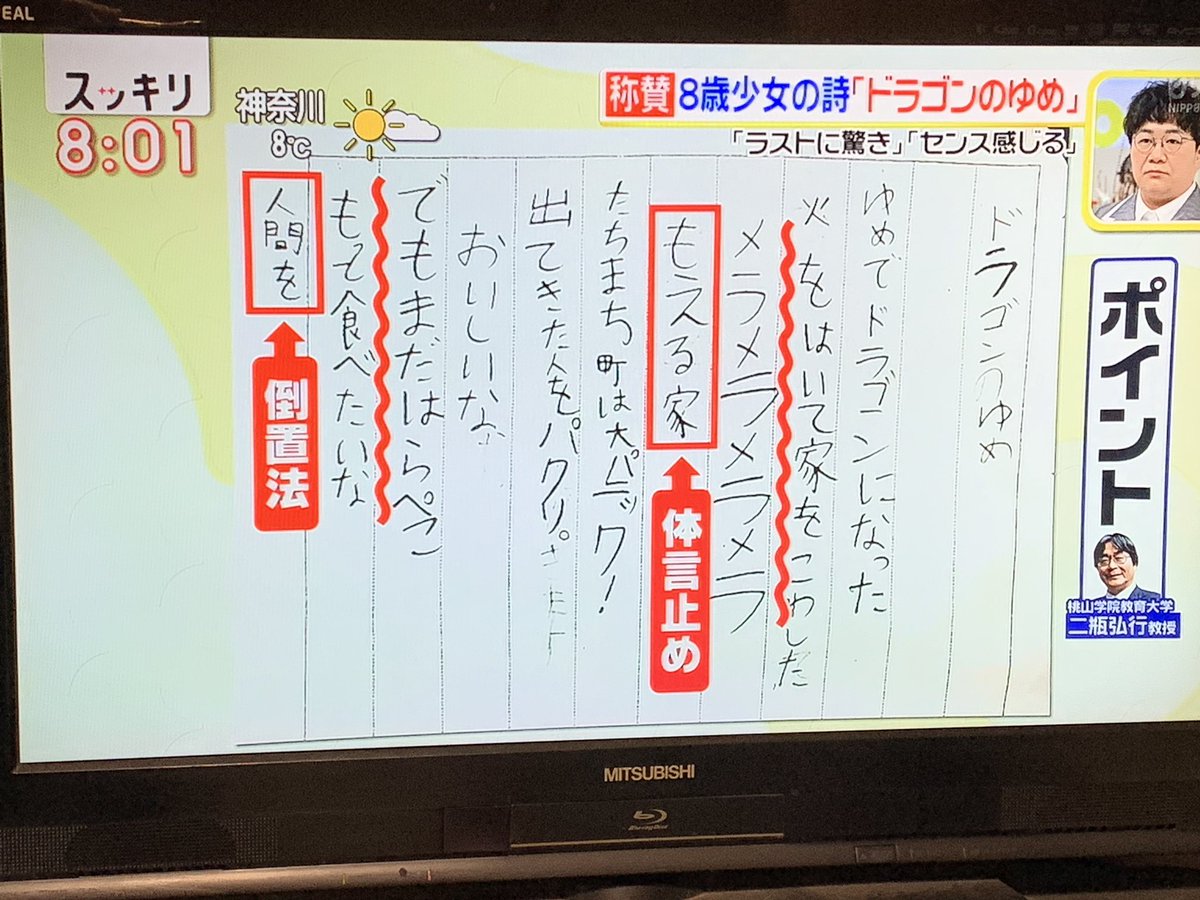 EAL
スッキリ
8:01
神奈川
8℃
称賛 8歳少女の詩「ドラゴンのゆめ」
「ラストに驚き」「センス感じる」
NIPPO
ポイント
桃山学院教育大学
二瓶弘行教授
ドラゴンのゆめ
ゆめでドラゴンになった
火をはいて家をこわした
メラメラメラメラメラ
もえる家
体言止め
たちまち町は大パニック!
出てきた人をパクリ。
おいしいな
でもまだはらぺこ
もって食べたいな
人間を
倒置法
MITSUBISHI
Blu-ray Disc